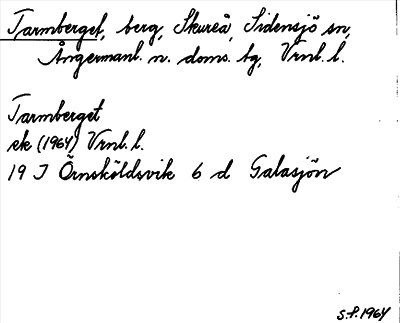 Tarmberget, berg, Skureå, Sidensjö sn,
Ångermanl. n. doms. tg, Vrnl. l.
Tarmberget
ek (1964) Vrnl. l.
19 J Örnsköldsvik 6 d Galasjön
S.P. 1964